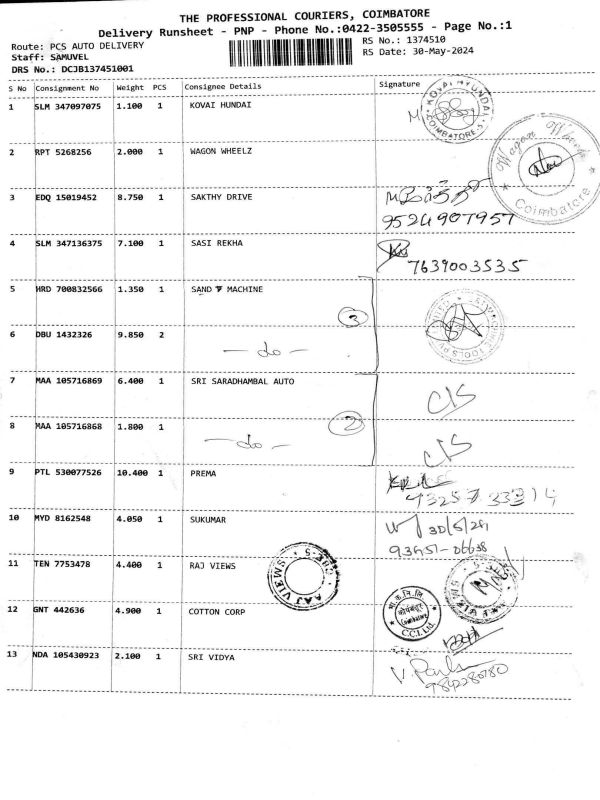 THE PROFESSIONAL COURIERS, COIMBATORE
Delivery Runsheet - PNP - Phone No.:0422-3505555 - Page No.:1
Route: PCS AUTO DELIVERY
RS No.: 1374510
Staff: SAMUVEL
RS Date: 30-May-2024
DRS No.: DCJB137451001
S No Consignment No Weight PCS Consignee Details Signature
1 SLM 347097075 1.100 1 KOVAI HUNDAI
KOVAI HYUNDAI COIMBATORE
2 RPT 5268256 2.000 1 WAGON WHEELZ
Wagon Wheelz Coimbatore
3 EDQ 15019452 8.750 1 SAKTHY DRIVE
9524907957
4 SLM 347136375 7.100 1 SASI REKHA
7639003535
5 HRD 700832566 1.350 1 SAND V MACHINE
2
6 DBU 1432326 9.850 2 - do -
7 MAA 105716869 6.400 1 SRI SARADHAMBAL AUTO C/S
2
8 MAA 105716868 1.800 1 - do - C/S
9 PTL 530077526 10.400 1 PREMA
10 MYD 8162548 4.050 1 SUKUMAR
11 TEN 7753478 4.400 1 RAJ VIEWS
12 GNT 442636 4.900 1 COTTON CORP
C.C.I. Ltd.
13 NDA 105430923 2.100 1 SRI VIDYA